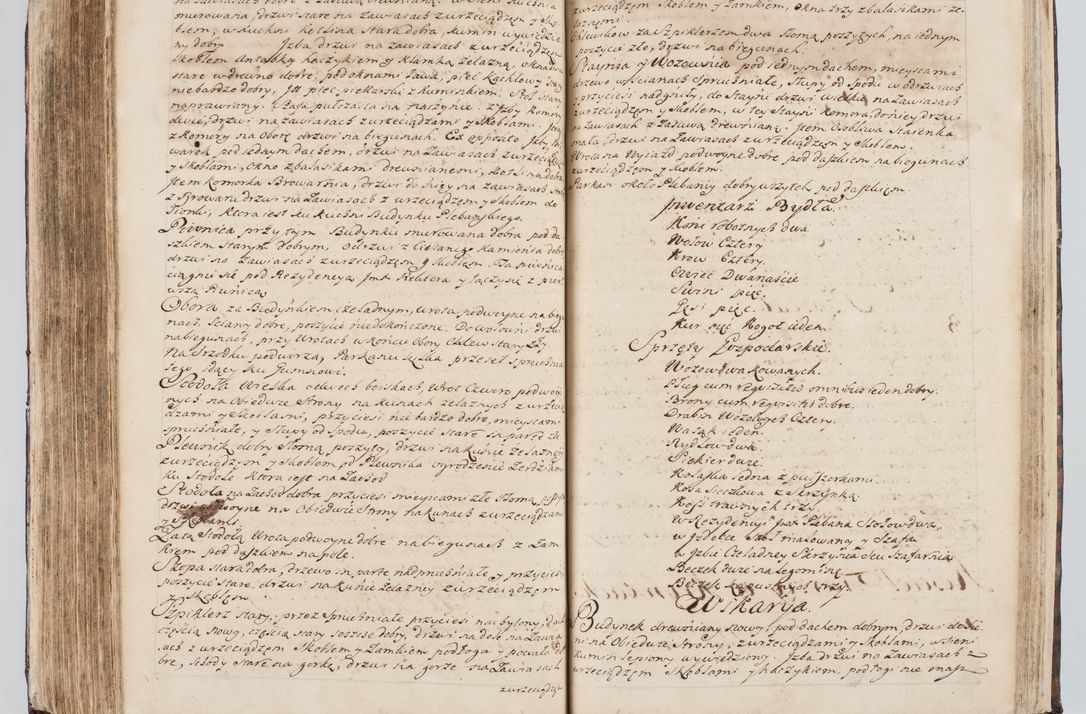 murowana, drzwi stare na zawiasach z wrzeciądzem y sko-
blem, w kuchni kotlina stara dobra, kumin wywiedzio
ny dobry Izba drzwi na zawiasach z wrzeciądzem
skoblem antabką haczykiem y klamką żelazną, okna dwa
stare w drewno dobre, pod oknami ława, piec kachlowy stary
nie bardzo dobry, Itt piec piekarski z kuminkiem. Stół stary
naprawiany. Szafa pułczasta na naczynie. z Izby komory
dwie, drzwi na zawiasach z wrzeciądzami y skoblami. Item
z komory na oborę drzwi na biegunach. Ex opposito Izby Bro
warek pod jednym dachem, drzwi na zawiasach z wrzeciądz
y skoblami, okno z balasikami drewnianemi, kotlina dobra
Item komorka Browarnia, drzwi do niey na zawiasach
z Browaru drzwi na zawiasach z wrzeciądzem y skoblem do
sionki, ktora iest ku kuchni Budynku Plebańskiego.
Piwnica przy tym Budynku murowana dobra pod da
szkiem starym dobrym, odrzwi z ciosanego kamienia dobre
drzwi na zawiasach z wrzeciądzem y skoblem. Ta piwnica
ciągnie się pod Rezydencyą Jmci Rektora y łączy się z pier
wszą Piwnicą.
Obora za Budynkiem czeladnym, wrota podwoyne na bie
nach, sciany dobre, poszycie niedokończone. Do wołowni drzwi
na biegunach, przy wrotach w końcu obory chlew stary zły
Na srzodku podworza, Parkanu sztuka przeseł spruchnia
łego idący ku Gumnowi.
Stodoła wielka o dwoch boiskach, wrot czworo podwoy
nych na obiedwie strony na kunach żelaznych z wrzecią
dzami y skoblami, przyciesi nie bardzo dobre, mieyscami
spruchniałe, y słupy od spodu, poszycie stare in parte złe.
Plewnik dobry słomą poszyty, drzwi na kunie żelazney
z wrzeciądzem y skoblem od Plewnika ogrodzenie żerdziam
ku stodole ktora iest na zachod
Stodoła na zachod dobra przyciesi mieyscami złe słomą poszyta
drzwi podwoyne na obiedwie strony na kunach z wrzeciądzami
y skoblami.
Za tą stodołą wrota podwoyne dobre na biegunach z zam
kiem pod daszkiem na pole.
Szopa stara dobra, drzewo in parte nadpruchniałe y przyciesi
poszycie stare, drzwi na kunie żelazney z wrzeciądzem
z skoblem
Szpiklerz stary, przez spruchniałe przyciesi nachylony, dach
częścią nowy, częścią stary ieszcze dobry, drzwi na dole na zawia
sach z wrzeciądzem skoblem y zamkiem, podłoga y powała do
bre, schody stare na gorkę, drzwi na gorze na zawiasach
z wrzeciądz
z wrzeciądzem skoblem y zamkiem, okna trzy z balasikami że-
laznemi.
Chlewikow za szpiklerzem dwa słomą poszytych, na iednym
poszycie złe, drzwi na biegunach.
Staynia y Wozownia pod iednym dachem, mieyscami
drzewo w scianach spruchniałe, słupy od spodu w odrzwiach
y przyciesi nadgniły, do stayni drzwi wielkie na zawiasach
z wrzeciądzem y skoblem, w tey stayni komora, do niey drzwi
na zawiasach z zasuwą drewnianą. Item osobliwa staienka
mała, drzwi na zawiasach z wrzeciądzem y skoblem.
Wrota na wyiazd podwoyne dobre pod daszkiem na biegunach
z wrzeciądzem y skoblem.
Parkan około Plebanij dobry wszytek pod daszkiem
Inwentarz Bydła
Koni robotnych dwa
Wołow cztery
Krow cztery.
Owiec dwanaście
Swini pięć.
Gęsi pięć.
Kur pięć Kogot ieden.
Sprzęty Gospodarskie.
Wozow dwa kowanych.
Pług cum requisitis omnibus ieden dobry.
Brony cum requisitis dobre.
Drabin wozowych cztery.
Wasąk ieden.
Rydlow dwa.
Siekier dwie.
Kolaska iedna z puszerkami.
Kosa sieczkowa z skrzynką.
Kos trawnych trzy.
w Rezydencyi Jmci Plebana stołow dwa,
w Izdebce stoł malowany y szafa
w Izbie czeladney skrzynia seu szafarnia
Beczek dwie na legominę
Beczek kapustnych trzy
Wikarya
Budynek drewniany nowy, pod dachem dobrym, drzwi do sie
ni na obiedwie strony, z wrzeciądzami y skoblami, w sieni
kumin lepiony wywiedziony. Izba drzwi na zawiasach z
wrzeciądzem skoblami y haczykiem, podłogi nie masz